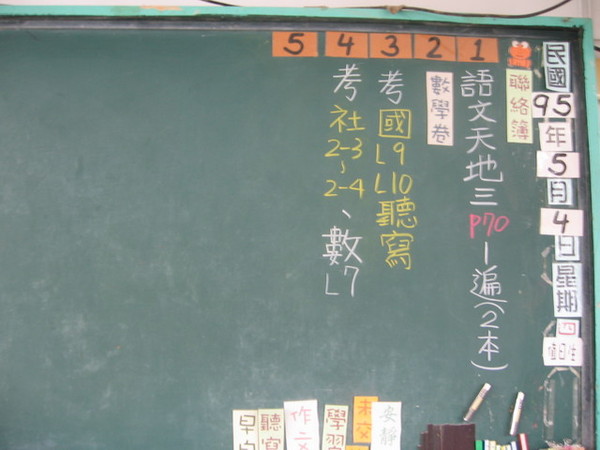 民國95年5月4日星期四
值日生
聯絡簿
1 語文天地三P70一遍(2本)
2 數學卷
3 考國L9 L10聽寫
4 考社2-3~2-4、數L7
5
安靜
未交
學習
作文
聽寫
早自